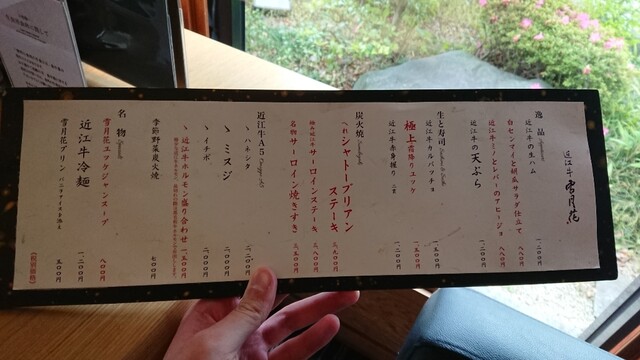 近江牛 雪月花
逸品
近江牛の生ハム 一、二〇〇円
白センマイと胡瓜サラダ仕立て 八八〇円
近江牛ミノとレバーのアヒージョ 八八〇円
近江牛の天ぷら 一、二〇〇円
生と寿司
近江牛カルパッチョ 一、五〇〇円
極上霜降りユッケ 一、五〇〇円
近江牛赤身握り 二貫 一、二〇〇円
炭火焼
へれ シャトーブリアンステーキ 三、八〇〇円
サーロインステーキ 二、八〇〇円
名物 サーロイン焼きすき 三、五〇〇円
近江牛A5
ハネシタ 二、二〇〇円
ミスジ 二、〇〇〇円
イチボ 二、〇〇〇円
近江牛ホルモン盛り合わせ 一、五〇〇円
季節野菜炭火焼 七〇〇円
名物
雪月花ユッケジャンスープ 八〇〇円
近江牛冷麺 一、二〇〇円
雪月花プリン バニラアイス添え 五〇〇円
(税別価格)